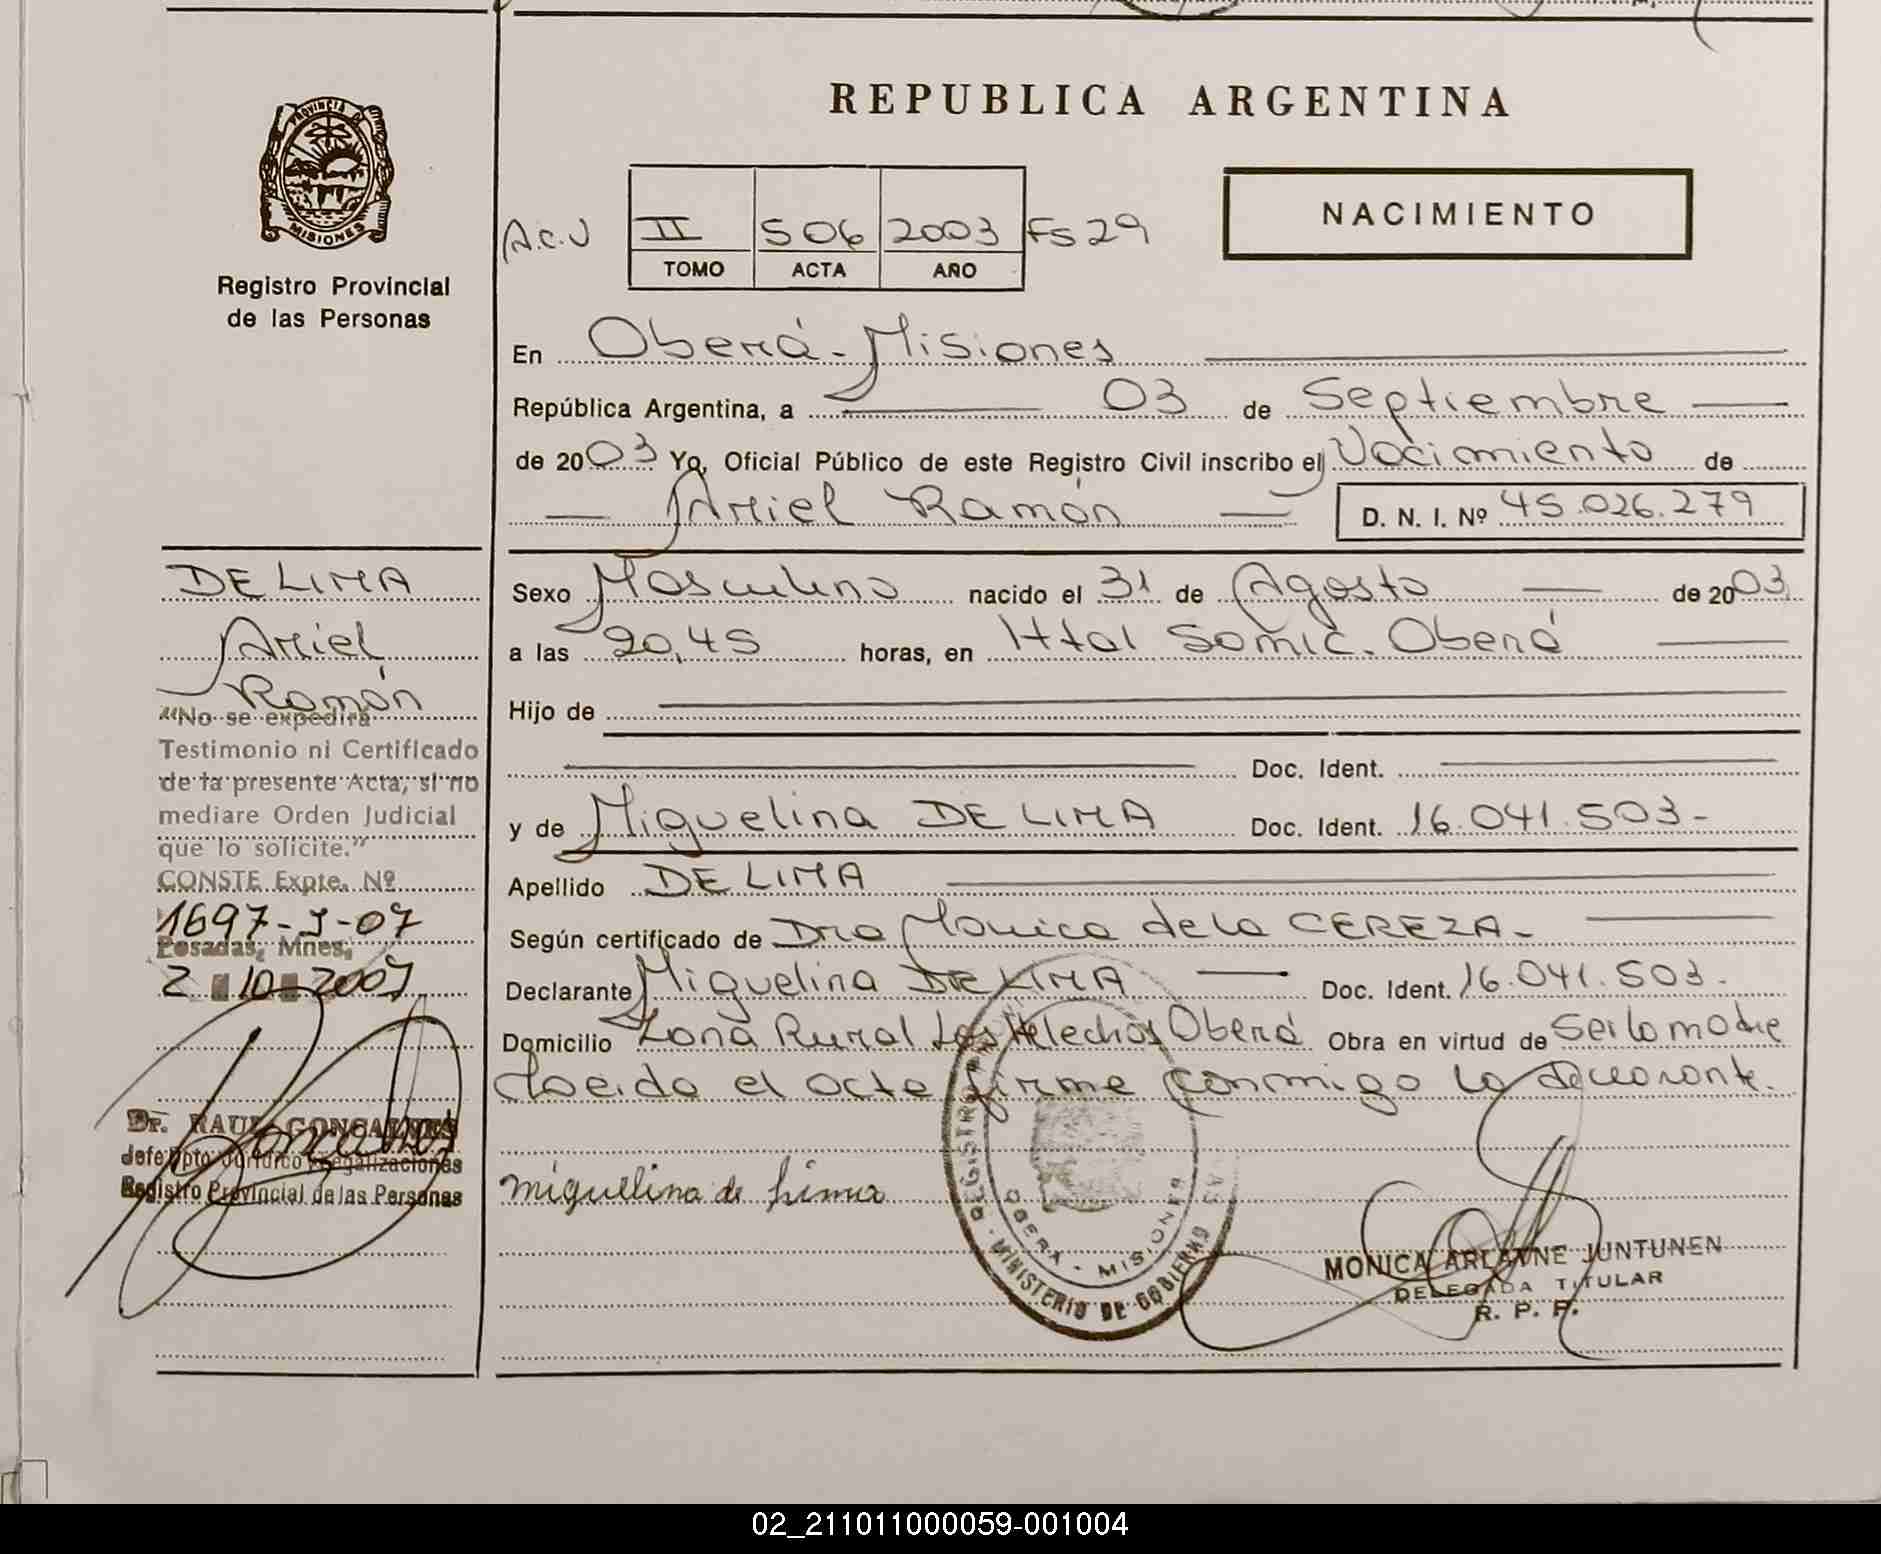 REPUBLICA ARGENTINA
PROVINCIA DE
MISIONES
Registro Provincial
de las Personas
A.C.U II 506 2003 Fs 29
TOMO ACTA AÑO
NACIMIENTO
En Oberá - Misiones
República Argentina, a 03 de Septiembre
de 2003 Yo, Oficial Público de este Registro Civil inscribo el Nacimiento de
Ariel Ramón D. N. I. Nº 45.026.279
Sexo Masculino nacido el 31 de Agosto de 2003
a las 20,45 horas, en Htal Samic. Oberá
Hijo de
Doc. Ident.
y de Miguelina DE LIMA Doc. Ident. 16.041.503-
Apellido DE LIMA
Según certificado de Dra Monica de la CEREZA-
Declarante Miguelina DE LIMA Doc. Ident. 16.041.503-
Domicilio Zona Rural Los Helechos Oberá Obra en virtud de Ser la madre
Leida el acta firma conmigo la declarante.
miguelina de lima
REGISTRO
OBERA - MISIONES
MINISTERIO DE GOBIERNO
MONICA ARLAYNE JUNTUNEN
DELEGADA TITULAR
R. P. P.
DE LIMA
Ariel
Ramón
"No se expedirá
Testimonio ni Certificado
de la presente Acta, si no
mediare Orden Judicial
que lo solicite."
CONSTE Expte. Nº
1697-J-07
Posadas, Mnes,
2 10 2007
Dr. RAUL GONCALVES
Jefe Dpto Jurídico y Legalizaciones
Registro Provincial de las Personas
02_211011000059-001004